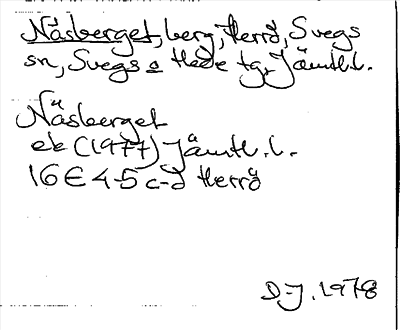 Näsberget, berg, Herrö, Svegs
sn, Svegs o Hede tg, Jämtl.l.
Näsberget
ek (1977) Jämtl.l.
16E 4-5 c-d Herrö
D-J. 1978